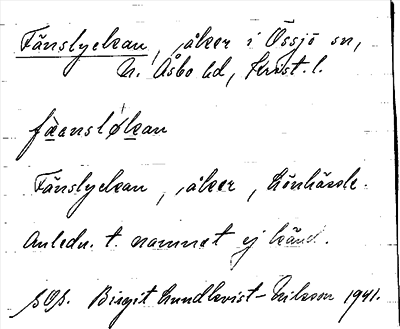 Fänslyckan, åker i Össjö sn,
N. Åsbo hd, Krist. l.
fäanslø̍kan
Fänslyckan, åker, Hönhässle.
Anledn. t. namnet ej känd.
Birgit Lundkvist-Eriksson 1941.